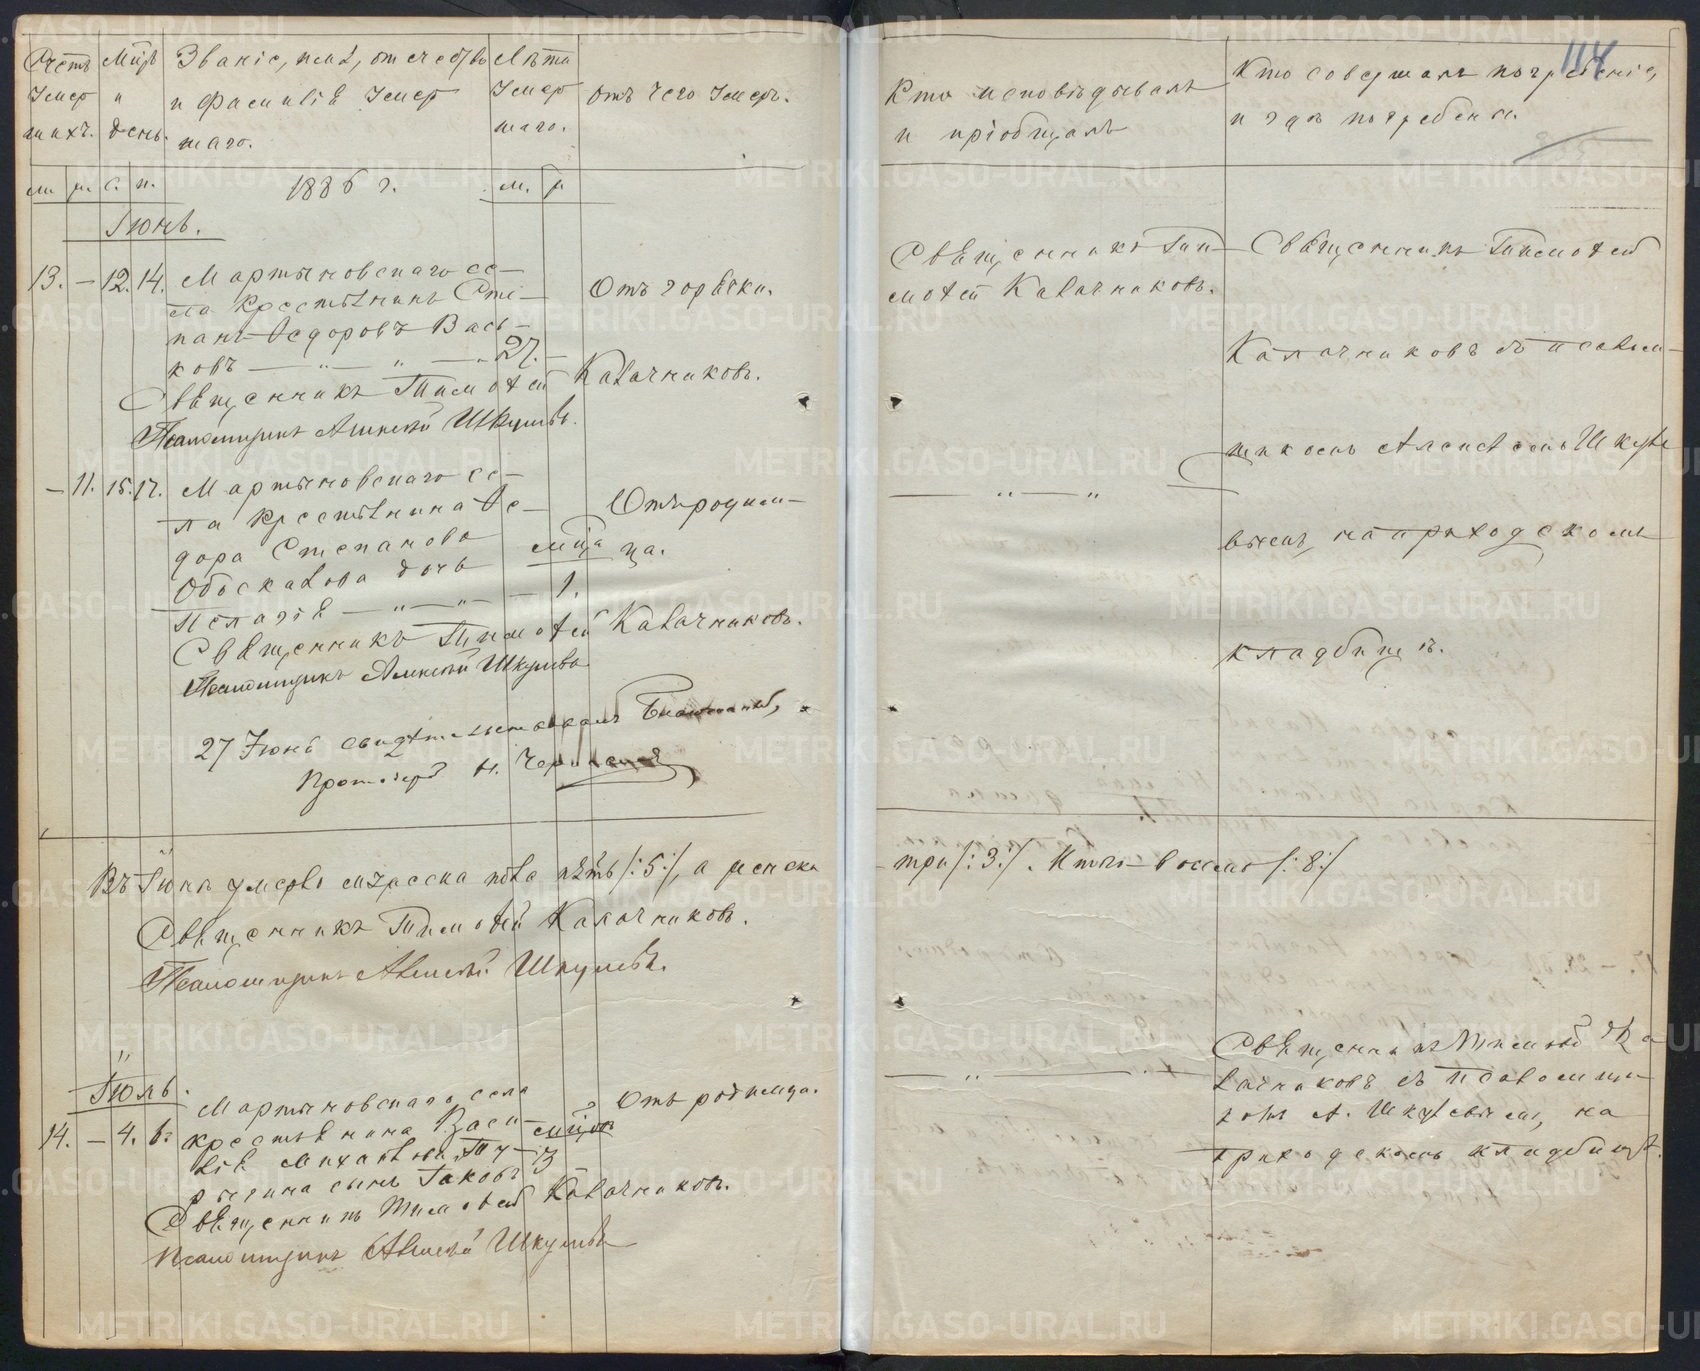 Счетъ
Умер
шихъ.
Мцъ
и
день.
Званіе, имя, отчество
и фамилія Умер
шаго.
Лѣта
Умер
шаго.
Отъ чего Умеръ.
м. ж. с. п.
1886 г.
м. ж
Іюнь.
13. — 12. 14. Мартыновскаго се—
ла крестьянинъ Сте—
панъ Ѳедоровъ Вась—
ковъ — „ — „ — 27. —
Отъ горячки.
Священникъ Тимоѳей Калачниковъ.
Псаломщикъ Алексѣй Шкулевъ.
— 11. 15. 17. Мартыновскаго се—
ла крестьянина Ѳе—
дора Степанова
дочь
Пелагія — „ — „ — — 1.
мца
Отъ родим—
ца.
Священникъ Тимоѳей Калачниковъ.
Псаломщикъ Алексѣй Шкулевъ
27 Іюня свидѣтельствовалъ Благочинный,
Протоіерей Н.
Въ Іюнѣ умерло мужеска пола пять /:5:/, а женска
Священникъ Тимоѳей Калачниковъ.
Псаломщикъ Алексѣй Шкулевъ.
Іюль.
14. — 4. 6. Мартыновскаго села
крестьянина Васи—
лія Михайлова
сынъ Іаковъ
мцев
3
Отъ родимца.
Священникъ Тимоѳей Калачниковъ.
Псаломщикъ Алексѣй Шкулевъ
114
Кто исповѣдывалъ
и пріобщалъ
Кто совершалъ погребеніе,
и гдѣ погребены.
Священникъ Ти—
моѳей Калачниковъ.
Священникъ Тимоѳей
Калачниковъ съ псалом—
щикомъ Алексѣемъ Шкуле
вымъ, на приходскомъ
кладбищѣ.
— „ — „
три /:3:/. Итого восемь /:8:/
— „ —
Священникъ Тимоѳей Ка
лачниковъ съ псаломщи—
комъ А. Шкулевымъ, на
приходскомъ кладбищѣ.
METRIKI.GASO-URAL.RU